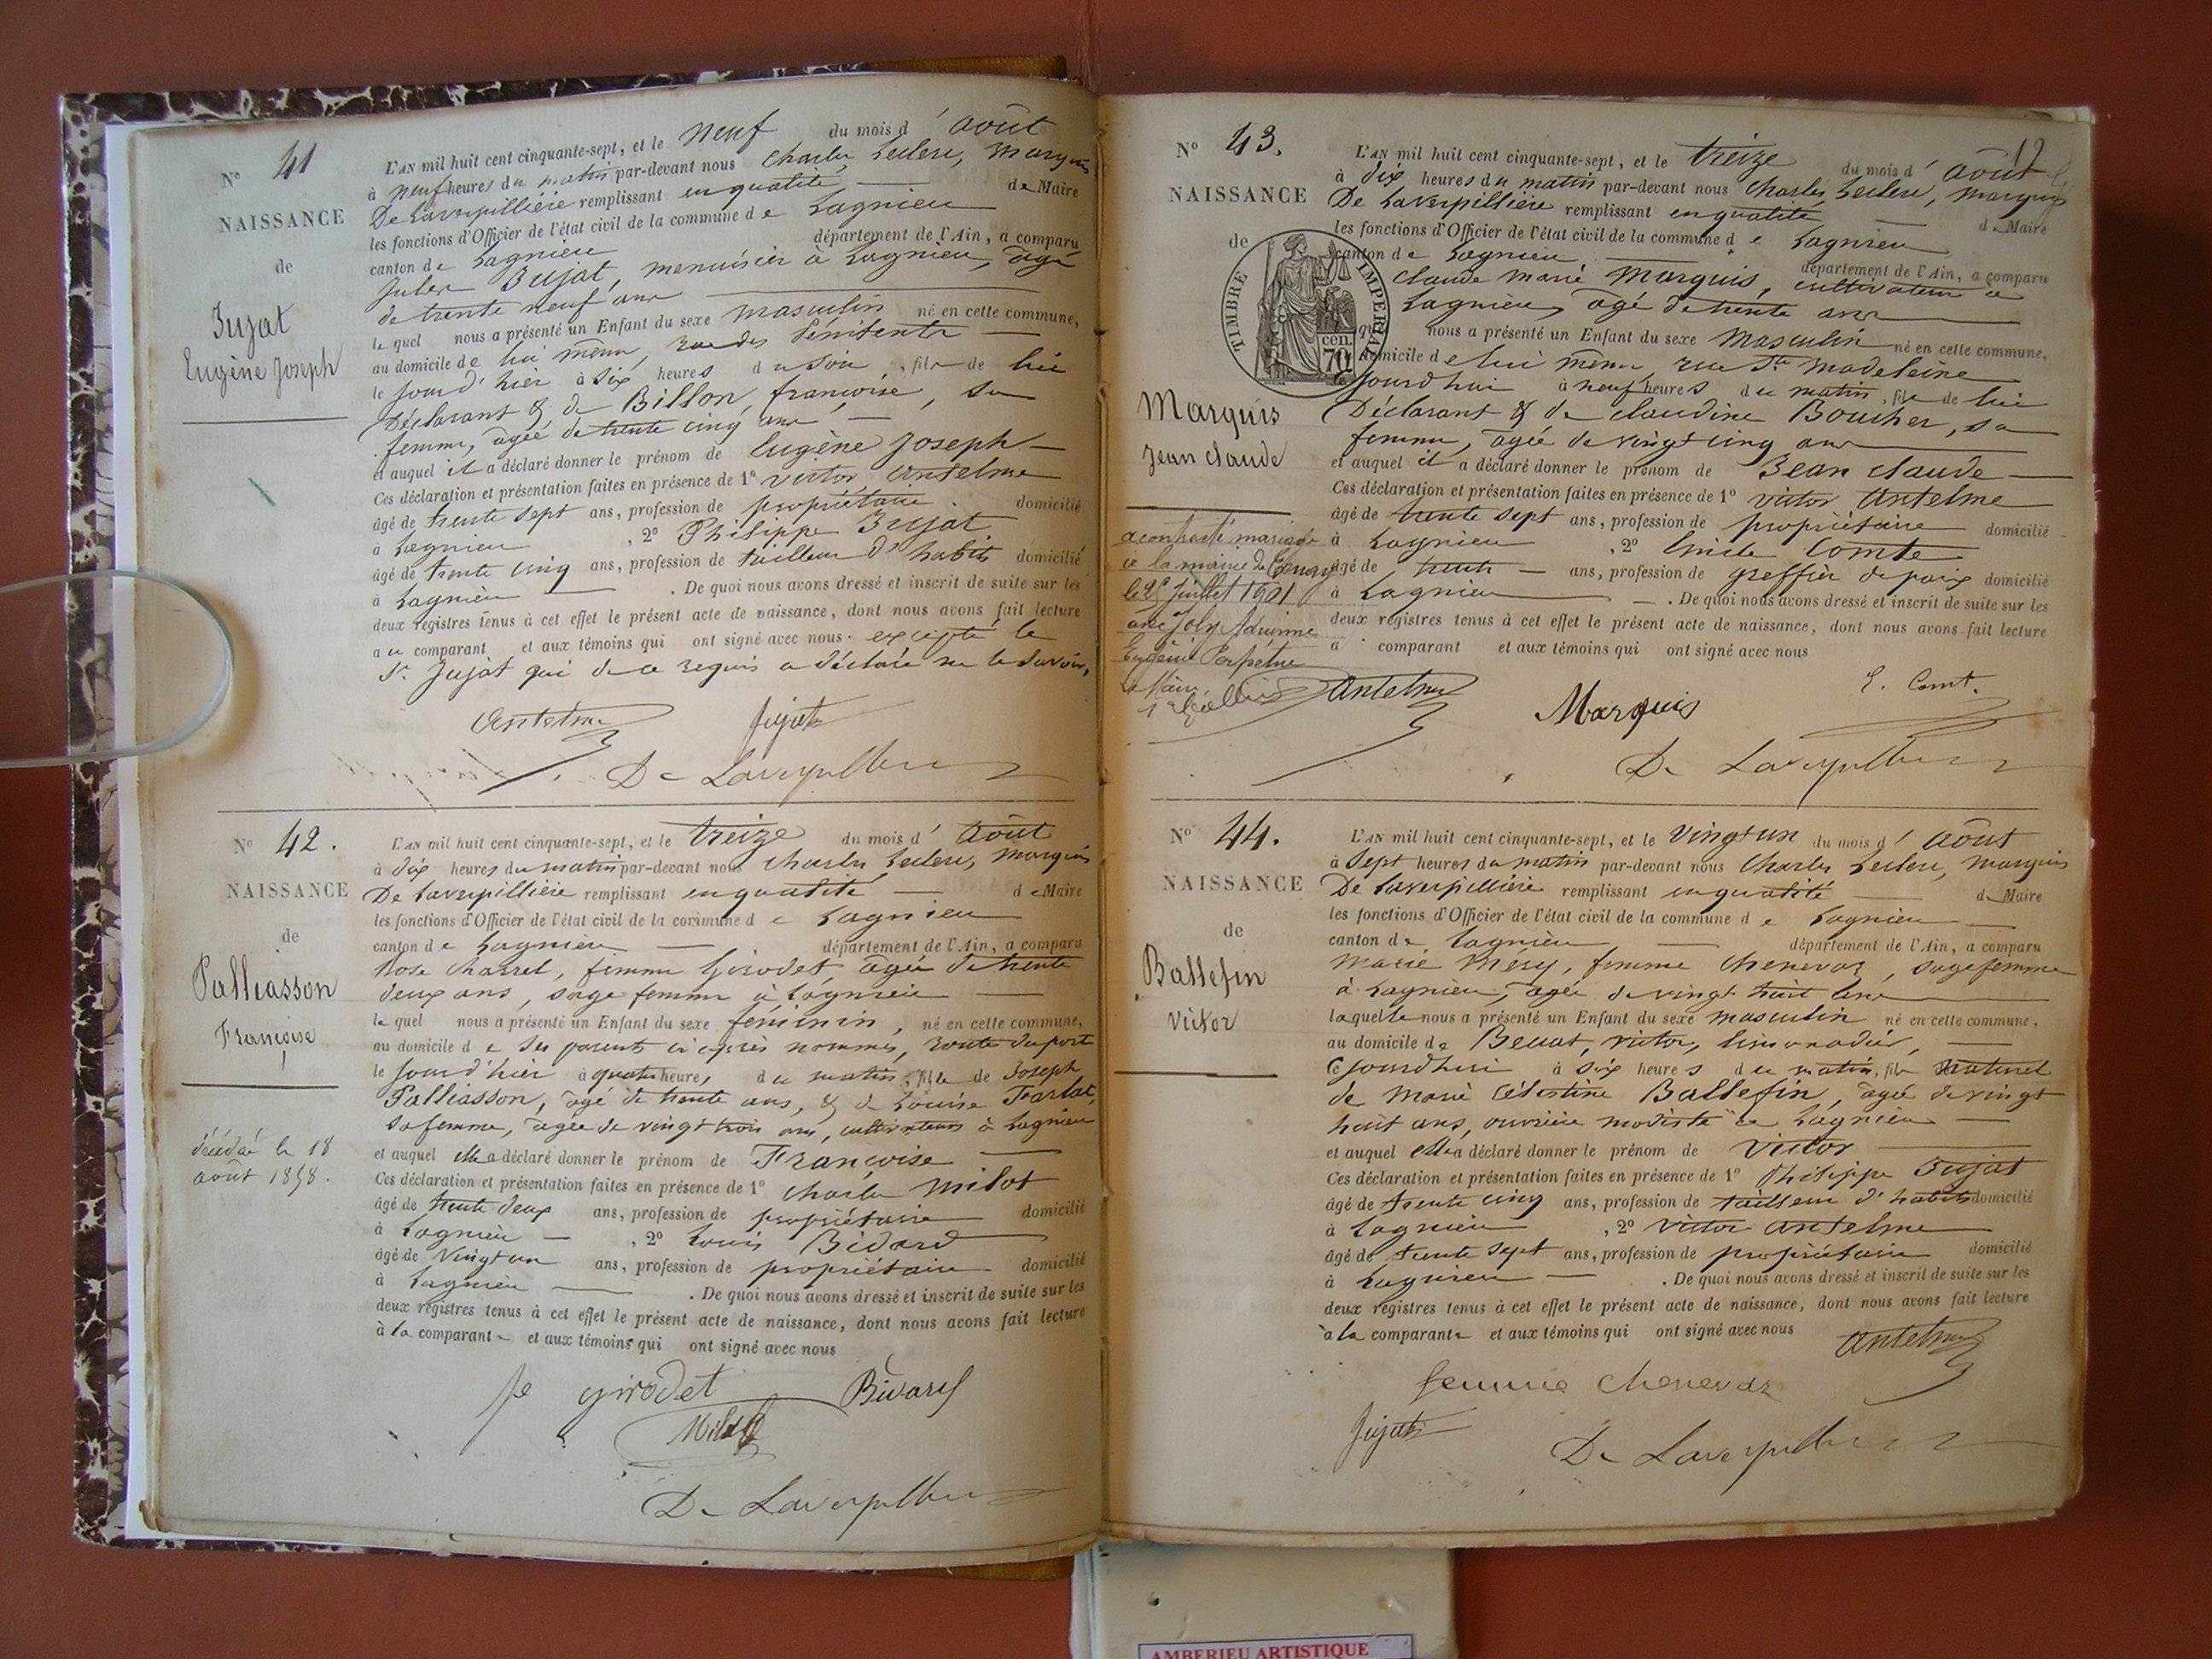 N° 41
NAISSANCE
de
Jujat
Eugène Joseph
L'AN mil huit cent cinquante-sept, et le neuf du mois d'août
à neuf heures du matin par-devant nous Charles Leclerc, Marquis
De Laverpillière remplissant en qualité de Maire
les fonctions d'Officier de l'état civil de la commune de Lagnieu
canton de Lagnieu département de l'Ain, a comparu
Jules Jujat, menuisier à Lagnieu, âgé
de trente neuf ans
lequel nous a présenté un Enfant du sexe masculin né en cette commune,
au domicile de lui même, rue des Pénitents
le jourd'hier à six heures du soir, fils de lui
Déclarant & de Billon, françoise, sa
femme, âgée de trente cinq ans
et auquel il a déclaré donner le prénom de Eugène Joseph
Ces déclaration et présentation faites en présence de 1° victor Antelme
âgé de trente sept ans, profession de propriétaire domicilié
à Lagnieu, 2° Philippe Jujat
âgé de trente cinq ans, profession de tailleur d'habits domicilié
à Lagnieu. De quoi nous avons dressé et inscrit de suite sur les
deux registres tenus à cet effet le présent acte de naissance, dont nous avons fait lecture
au comparant et aux témoins qui ont signé avec nous. excepté le
Sr. Jujat qui de ce requis a déclaré ne le savoir,
Antelme Jujat
De Laverpillière
N° 42.
NAISSANCE
de
Palliasson
Françoise
décédée le 18
août 1858.
L'AN mil huit cent cinquante-sept, et le treize du mois d'août
à dix heures du matin par-devant nous Charles Leclerc, Marquis
De Laverpillière remplissant en qualité de Maire
les fonctions d'Officier de l'état civil de la commune de Lagnieu
canton de Lagnieu département de l'Ain, a comparu
Rose Charrel, femme Girodet âgée de trente
deux ans, sage femme à Lagnieu
lequel nous a présenté un Enfant du sexe féminin, né en cette commune,
au domicile de ses parents ci après nommés, route du port
le jourd'hier à quatre heures du matin, fille de Joseph
Palliasson, âgé de trente ans, & de Louise Tarlat,
sa femme, âgée de vingt trois ans, cultivateurs à Lagnieu
et auquel elle a déclaré donner le prénom de Françoise
Ces déclaration et présentation faites en présence de 1° Charles Milot
âgé de trente deux ans, profession de propriétaire domicilié
à Lagnieu, 2° Louis Bidard
âgé de vingt un ans, profession de propriétaire domicilié
à Lagnieu. De quoi nous avons dressé et inscrit de suite sur les
deux registres tenus à cet effet le présent acte de naissance, dont nous avons fait lecture
à la comparante et aux témoins qui ont signé avec nous
fe girodet
Milot
De Laverpillière
12
N° 43.
NAISSANCE
de
TIMBRE IMPERIAL
70 cen.
Marquis
Jean Claude
a contracté mariage
à la mairie de Tenay
le 25 Juillet 1901
avec Joly Adrienne
Eugénie Perpétue
Le Maire
L'AN mil huit cent cinquante-sept, et le treize du mois d'août
à dix heures du matin par-devant nous Charles Leclerc, Marquis
De Laverpillière remplissant en qualité de Maire
les fonctions d'Officier de l'état civil de la commune de Lagnieu
canton de Lagnieu, département de l'Ain, a comparu
Claude Marie Marquis, cultivateur à
Lagnieu, âgé de trente ans
qui nous a présenté un Enfant du sexe Masculin né en cette commune,
domicile de lui même, rue Ste Madeleine
jourd'hui à neuf heures du matin, fils de lui
Déclarant & de Claudine Boucher, sa
femme, âgée de vingt cinq ans
et auquel il a déclaré donner le prénom de Jean Claude
Ces déclaration et présentation faites en présence de 1° victor Antelme
âgé de trente sept ans, profession de propriétaire domicilié
à Lagnieu, 2° Emile Comte
âgé de trente ans, profession de greffier de paix domicilié
à Lagnieu. De quoi nous avons dressé et inscrit de suite sur les
deux registres tenus à cet effet le présent acte de naissance, dont nous avons fait lecture
a comparant et aux témoins qui ont signé avec nous
Antelme Marquis E. Comt.
De Laverpillière
N° 44.
NAISSANCE
de
Ballefin
Victor
L'AN mil huit cent cinquante-sept, et le vingt un du mois d'août
à sept heures du matin par-devant nous Charles Leclerc, Marquis
De Laverpillière remplissant en qualité de Maire
les fonctions d'Officier de l'état civil de la commune de Lagnieu
canton de Lagnieu département de l'Ain, a comparu
Marie Mery, femme Chenevaz, sage femme
à Lagnieu, âgée de vingt huit ans
laquelle nous a présenté un Enfant du sexe masculin né en cette commune,
au domicile de victor, limonadier,
Cejourdhui à six heures du matin, fils naturel
de Marie Célestine Ballefin, âgée de vingt
huit ans, ouvrière modiste à Lagnieu
et auquel elle a déclaré donner le prénom de Victor
Ces déclaration et présentation faites en présence de 1° Philippe Jujat
âgé de trente cinq ans, profession de tailleur d'habits domicilié
à Lagnieu, 2° Victor Antelme
âgé de trente sept ans, profession de propriétaire domicilié
à Lagnieu. De quoi nous avons dressé et inscrit de suite sur les
deux registres tenus à cet effet le présent acte de naissance, dont nous avons fait lecture
à la comparante et aux témoins qui ont signé avec nous
Antelme
femme Chenevaz
Jujat
De Laverpillière
AMBERIEU ARTISTIQUE